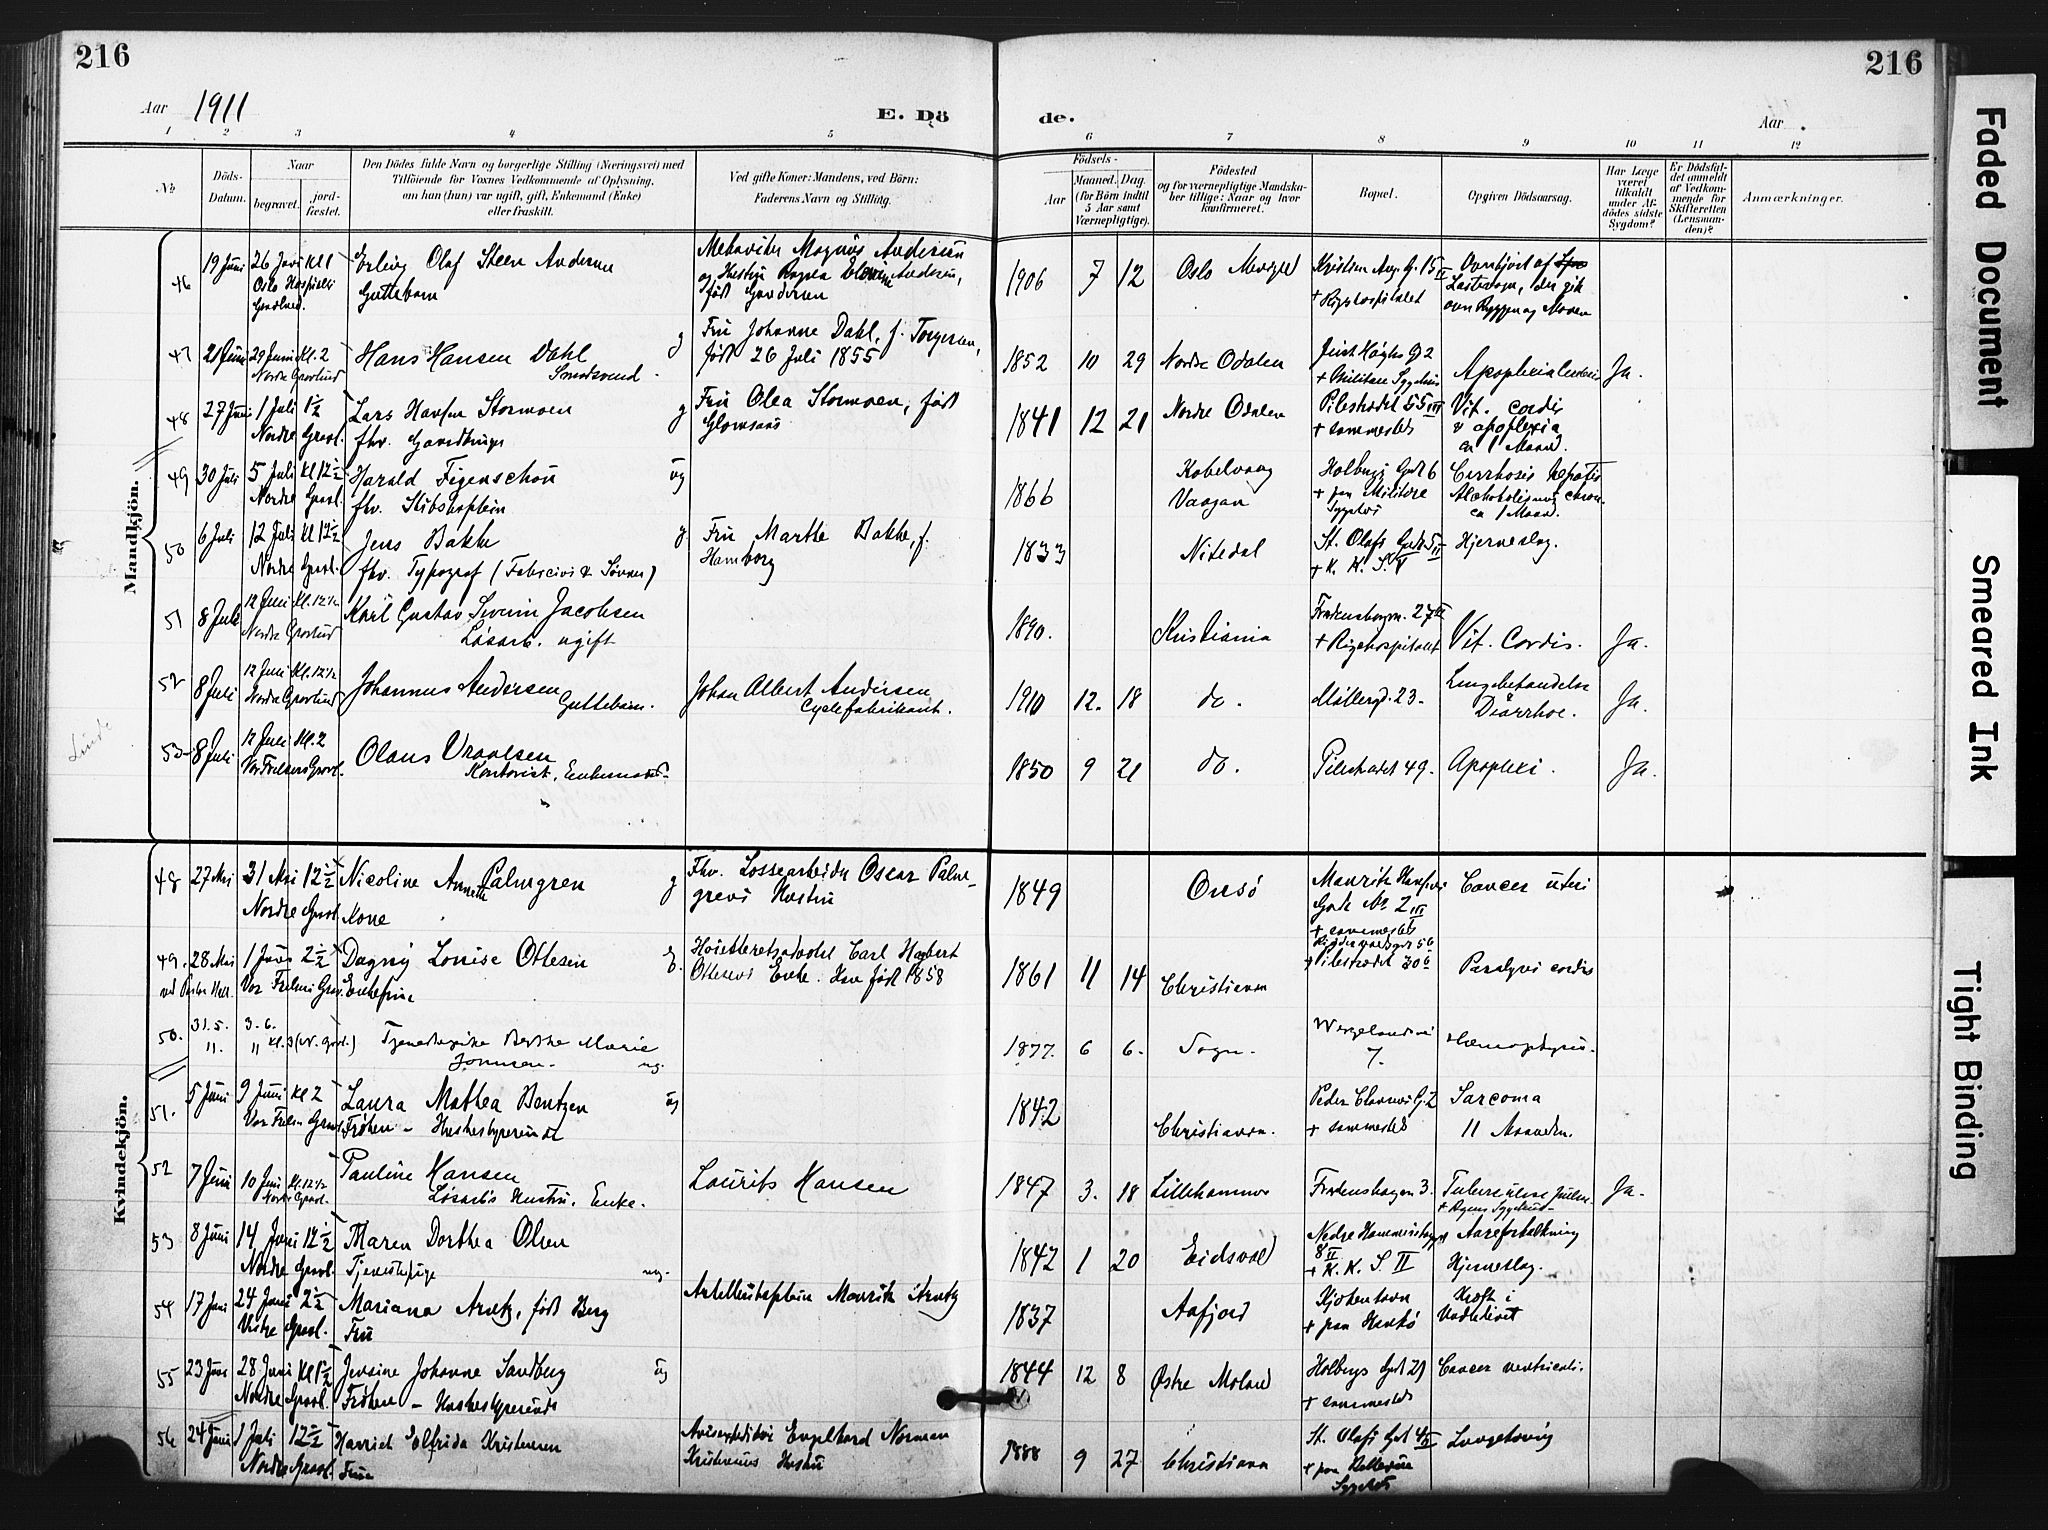 216
216
Aar 1911
E. Dö
de.
Aar
1 2 3 4 5 6 7 8 9 10 11 12
No
Döds-Datum.
Naar
begravet.
jord-fæstet.
Den Dödes fulde Navn og borgerlige Stilling (Næringsvei) med
Tilföiende for Voxnes Vedkommende af Oplysning,
om han (hun) var ugift, gift, Enkemand (Enke)
eller fraskilt.
Ved gifte Koner: Mandens, ved Börn:
Faderens Navn og Stilling.
Födsels-
Aar
Maaned. Dag.
(for Börn indtil
5 Aar samt
Værnepligtige).
Födested
og for værnepligtige Mandska-
ber tillige: Naar og hvor
konfirmeret.
Bopæl.
Opgiven Dödsaarsag.
Har Læge
været
tilkaldt
under Af-
dödes sidste
Sygdom?
Er Dödsfal-
det anmeldt
af Vedkom-
mende for
Skifteretten
(Lensman-
den)?
Anmærkninger.
Mandkjön.
46 19 Juni 26 Juni Kl 1 Erling Olaf Steen Andersen
Oslo Hospitals Gravlund. Guttebarn
1906 7 12 Oslo
+ Rigshospitalet
47 21 Juni 29 Juni Kl. 2 Hans Hansen Dahl g Fru Johanne Dahl, f. Torgersen,
Nordre Gravlund født 26 Juli 1855
1852 10 29 Nordre Odalen Apoplexia Ja.
48 27 Juni 1 Juli 1½ Lars Stormoen g Fru Olea Stormoen, født
Nordre Gravl. fhv. Gaardbruger
1841 12 21 Nordre Odalen Pilestrædet 55 III Vit. cordis
+ sammesteds & apoplexia
ca 1 Maaned.
49 30 Juni 5 Juli Kl 12½ Harald Figenschou ug
Nordre Gravl. fhv. Skibskaptein
1866 Kabelvaag Vaagan Holbergs Gade 6 Cirrhosis hepatis
+ paa Militære Sygehus Alcoholismus chron.
ca 1 Maaned.
50 6 Juli 12 Juli Kl 12½ Jens Bakke g. Fru Marthe Bakke, f.
Nordre Gravl. fhv. Typograf (Fabricius & Sønner) Hamborg
1833 Nitedal St. Olafs Gade 5 II Hjerneslag.
+ K. K. S. V
51 8 Juli 12 Juli Kl. 12½ Karl Gustav Severin Jacobsen
Nordre Gravlund Løsarb. ugift
1890. Kristiania 27 III Vit. Cordis. Ja.
+ Rigshospitalet
52 8 Juli 12 Juli Kl. 12½ Johannes Andersen Johan Albert Andersen
Nordre Gravlund Guttebarn. Cyclefabrikant.
1910 12. 18 do. Møllergd. 23. Ja.
Diarrhoe.
53 8 Juli 12 Juli Kl. 2 Olaus Vraalsen
Vor Frelsers Gravl. Kontorist, Enkemand.
1850 9 21 do. Pilestrædet 49. Apoplexi. Ja.
Linde
Kvindekjön.
48 27 Mai 31 Mai 12½ Nicoline Annette Palmgren g Fhv. Lossearbeider Oscar Palm-
Nordre Gravl. Kone grens Hustru
1849 Onsö Cancer uteri
Gade No 2 III
+ sammesteds
49. 28 Mai 1 Juni 2½ Dagny Louise Ottesen E. Høiesteretsadvokat Carl Herbert
Vor Frelsers Grav. Enkefrue Ottesens Enke. Han født 1858
1861 11 14 Christiania Pilestrædet 30 Paralysis cordis
50. 31.5. 11. 3.6. 11 Kl. 3 (N. Gravl.) Tjenestepike Berthe Marie
ug.
1877. 6 6. Sogn. Wergelandsvei 7. Hæmoptysis.
51. 5 Juni 9 Juni Kl 2 Laura Mathea Bentzen ug
Vor Frelsers Gravl. Frøken – Husbestyrerinde
1842 Christiania. Peder Claussøns G. 2 Sarcoma
+ sammesteds 11 Maaneder.
52 7 Juni 10 Juni Kl. 12½ Pauline Hansen Laurits Hansen
Nordre Gravl. Løsarb's Hustru, Enke.
1847 3. 18 Lillehammer 3. Ja.
53 8 Juni 14 Juni 12½ Maren Dorthea Olsen
Nordre Gravl. Tjenestepige ug.
1842 1 20 Eidsvold Aareforkalkning
8 II + K. K. S. II Hjerneslag.
54 17 Juni 24 Juni 2½ Mariana Arntz, født Berg Artillerikaptein Mauritz Arntz
Vestre Gravl. Fru
1837 Aafjord Kjøbenhavn Kræft i
+ paa Hankø Underlivet
55 23 Juni 28 Juni Kl 1½ Jensine Johanne Sandberg ug
Nordre Gravl. Frøken – Husbestyrerinde
1844 12 8 Østre Moland Holbergs Gade 21 Cancer ventriculi.
+ sammesteds
56 24 Juni 1 Juli 12½ Harriet Elfrida Kristensen Avisexpeditør Engelhard Norman
Nordre Gravl. Frue Kristensens Hustru
1888 9 27 Christiania St. Olafs Gade Lungetæring
+ paa Bellevue Sygehus
Faded Document
Smeared Ink
Tight Binding